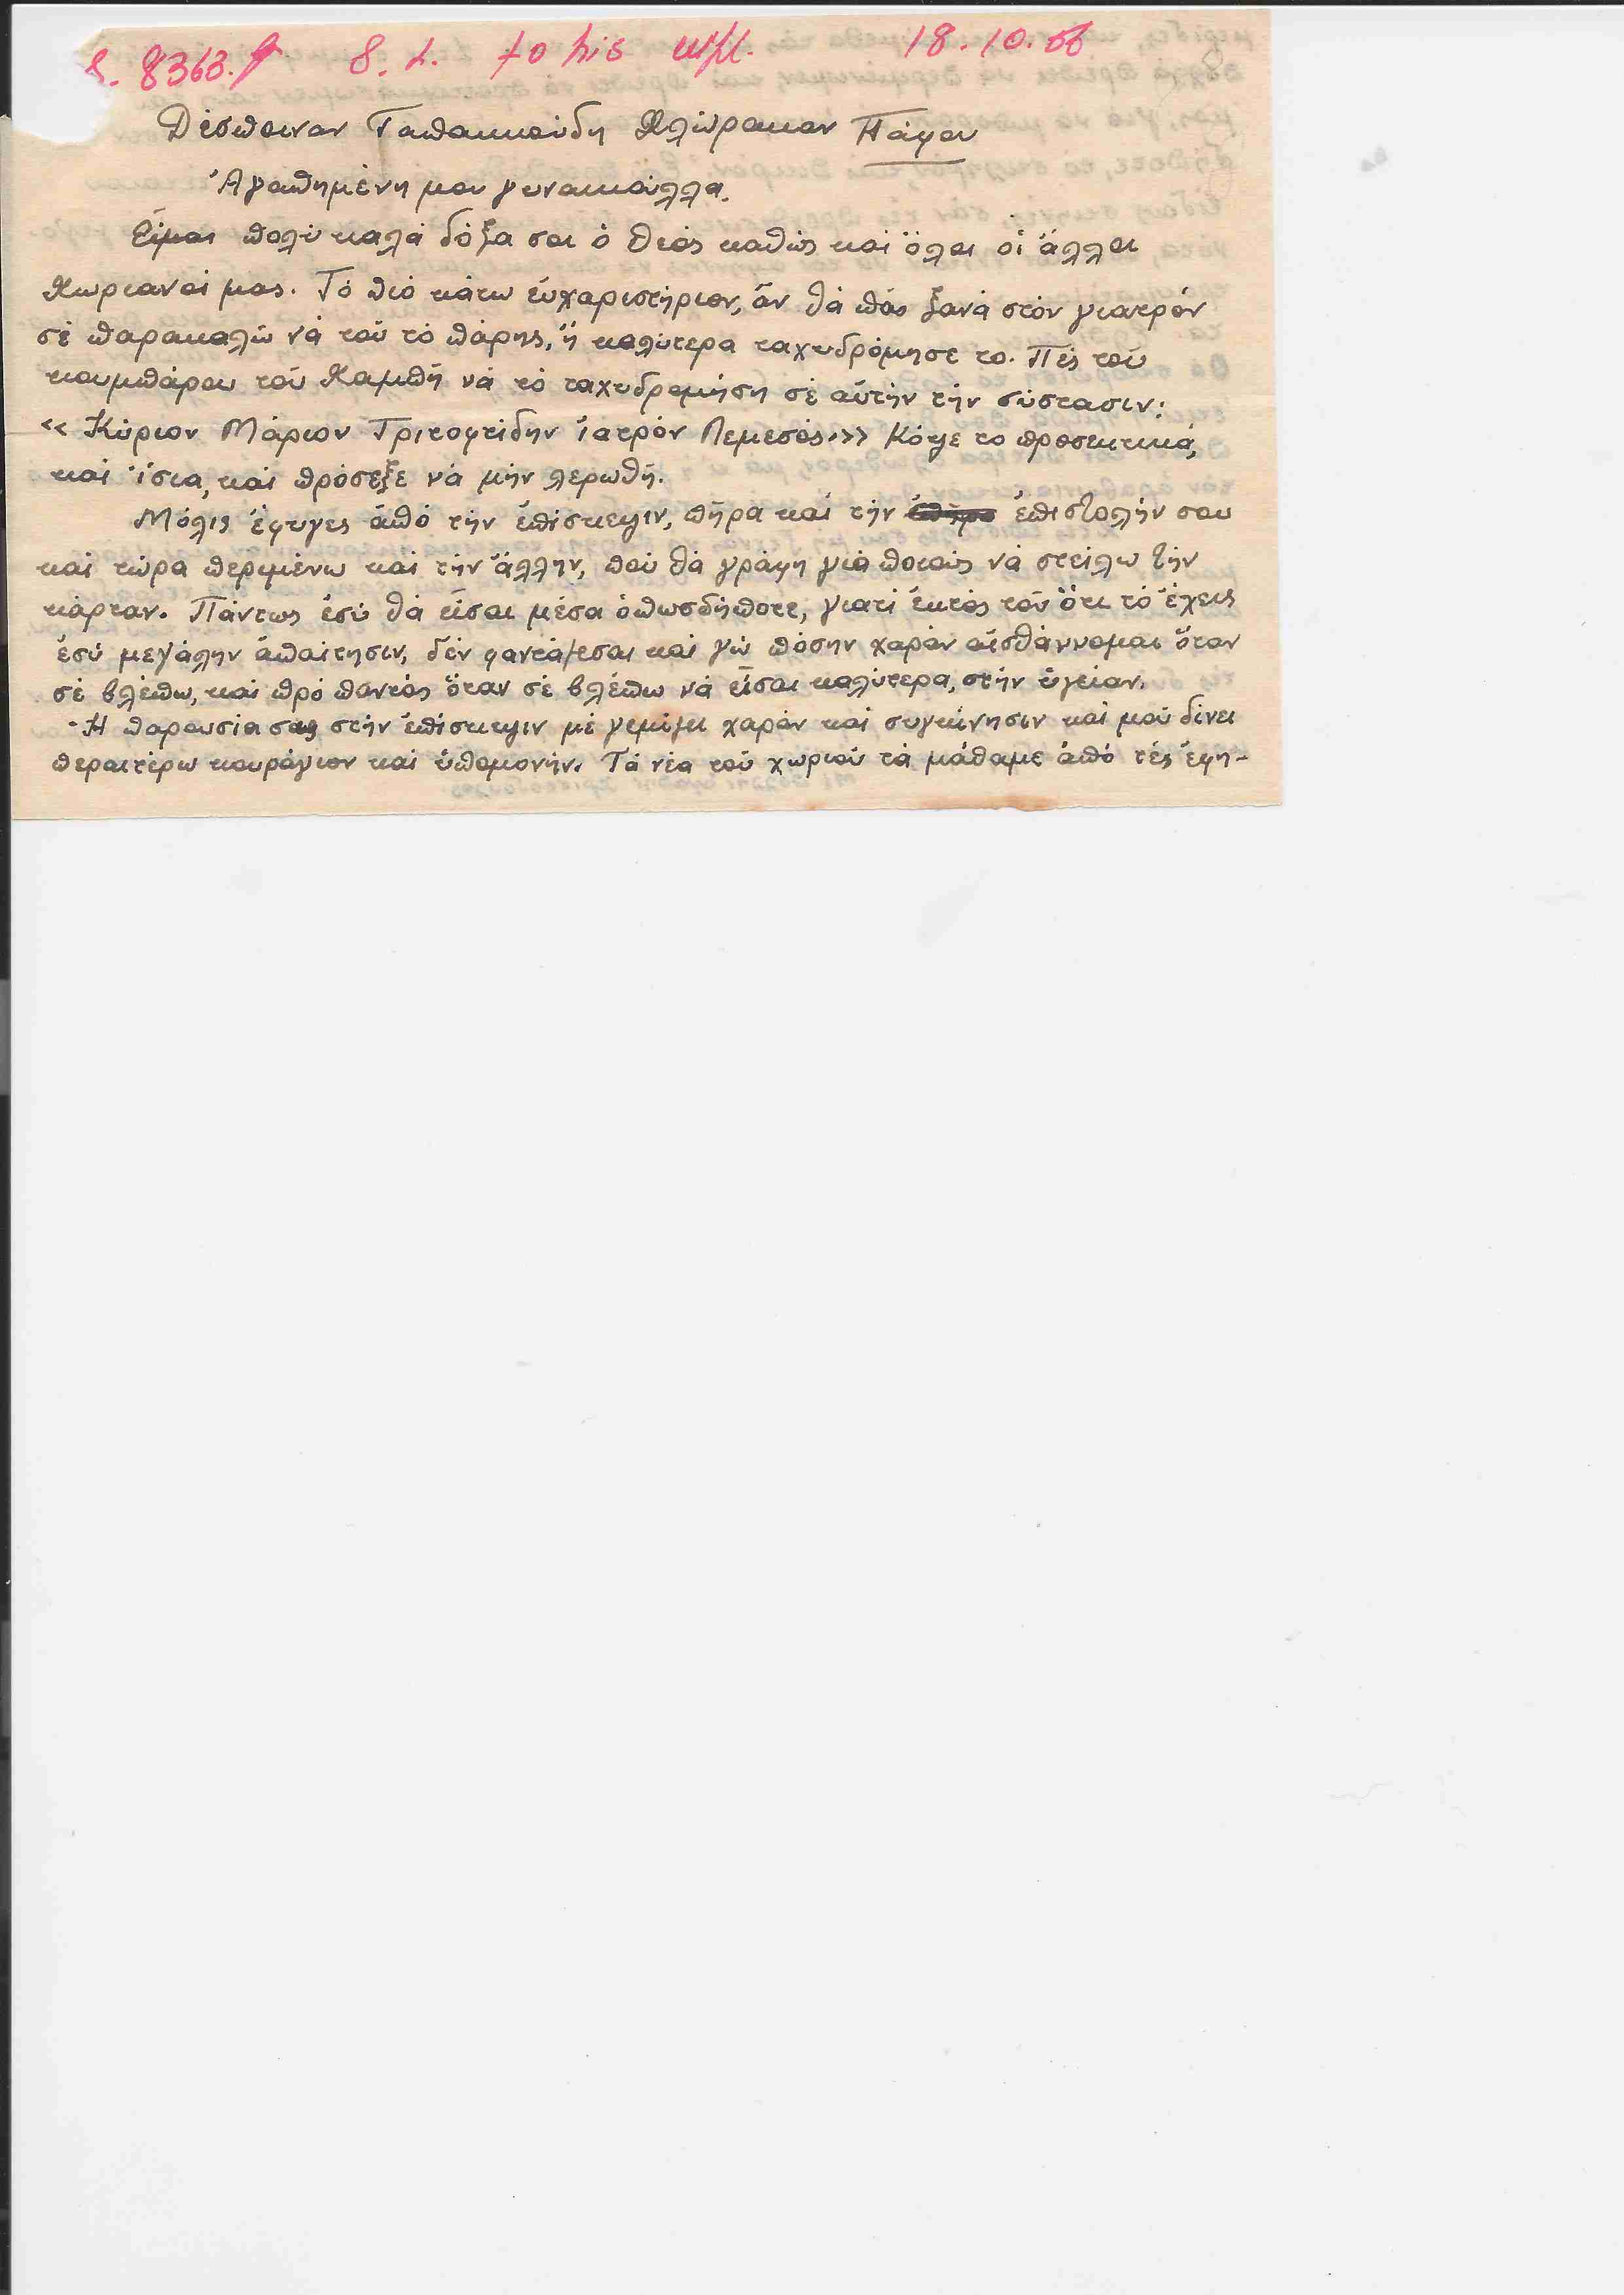 S. 8363. 8. L. to his wife. 18.10.56
Δέσποιναν Ταπακκούδη Χλώρακαν Πάφου
Ἀγαπημένη μου γυναικούλλα.
Εἶμαι πολύ καλά δόξα σοι ὁ Θεός καθώς καί ὅλοι οἱ ἄλλοι
Χωριανοί μας. Τό πιό κάτω εὐχαριστήριον, ἄν θά πᾶς ξανά στόν γιατρόν
σέ παρακαλῶ νά τοῦ τό πάρης, ἤ καλύτερα ταχυδρόμησε το. Πές τοῦ
κουμπάρου τοῦ Χαμπῆ νά τό ταχυδρομήση σέ αὐτήν τήν σύστασιν:
«Κύριον Μάριον Τριτοφτίδην ἰατρόν Λεμεσός.» Κόψε το προσεκτικά,
καί ἴσια, καί πρόσεξε νά μήν λερωθῆ.
Μόλις ἔφυγες ἀπό τήν ἐπίσκεψιν, πῆρα καί τήν ἐπιστολήν σου
καί τώρα περιμένω καί τήν ἄλλην, πού θά γράφη γιά ποιούς νά στείλω τήν
κάρταν. Πάντως ἐσύ θά εἶσαι μέσα ὁπωσδήποτε, γιατί ἐκτός τοῦ ὅτι τό ἔχεις
ἐσύ μεγάλην ἀπαίτησιν, δέν φαντάζεσαι καί γώ πόσην χαράν αἰσθάννομαι ὅταν
σέ βλέπω, καί πρό παντός ὅταν σέ βλέπω νά εἶσαι καλύτερα, στήν ὑγείαν.
Ἡ παρουσία σας στήν ἐπίσκεψιν μέ γεμίζει χαράν καί συγκίνησιν καί μοῦ δίνει
περαιτέρω κουράγιον καί ὑπομονήν. Τά νέα τοῦ χωριοῦ τά μάθαμε ἀπό τές ἐφη-